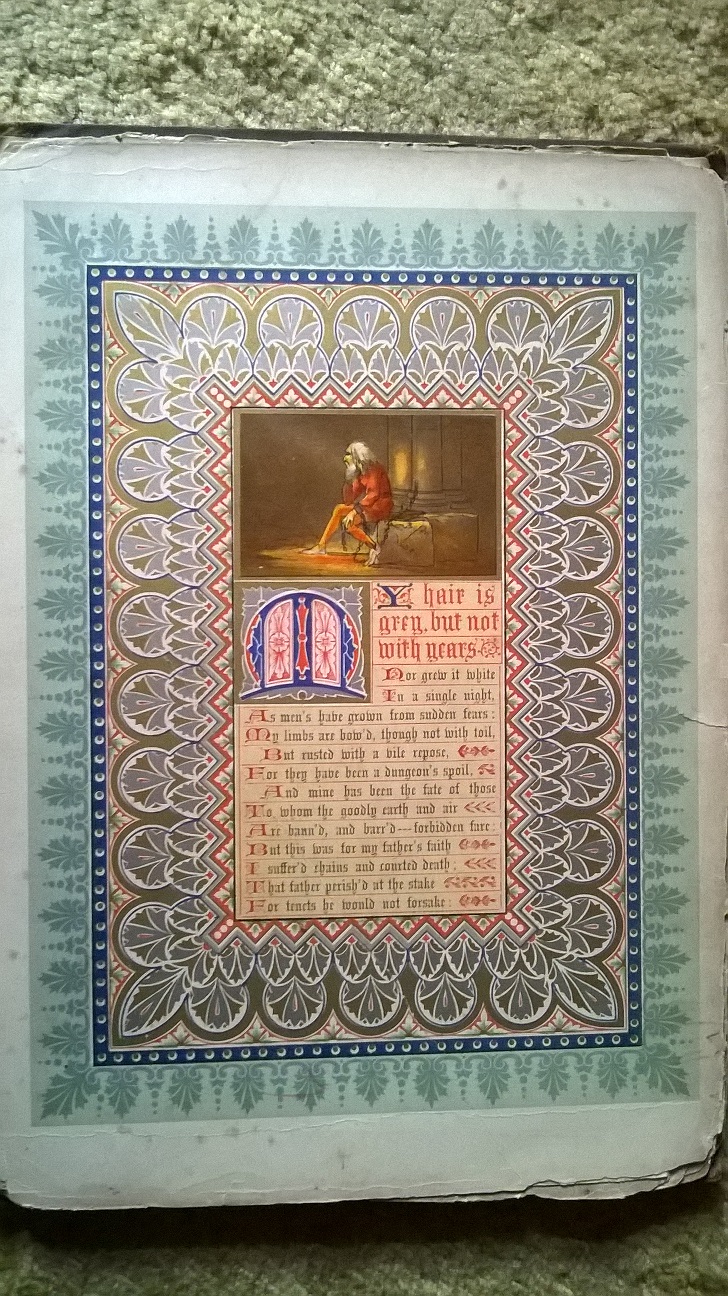 MY hair is
grey, but not
with years.
Nor grew it white
In a single night,
As men's have grown from sudden fears:
My limbs are bow'd, though not with toil,
But rusted with a vile repose,
For they have been a dungeon's spoil,
And mine has been the fate of those
To whom the goodly earth and air
Are bann'd, and barr'd---forbidden fare:
But this was for my father's faith
I suffer'd chains and courted death;
That father perish'd at the stake
For tenets he would not forsake: